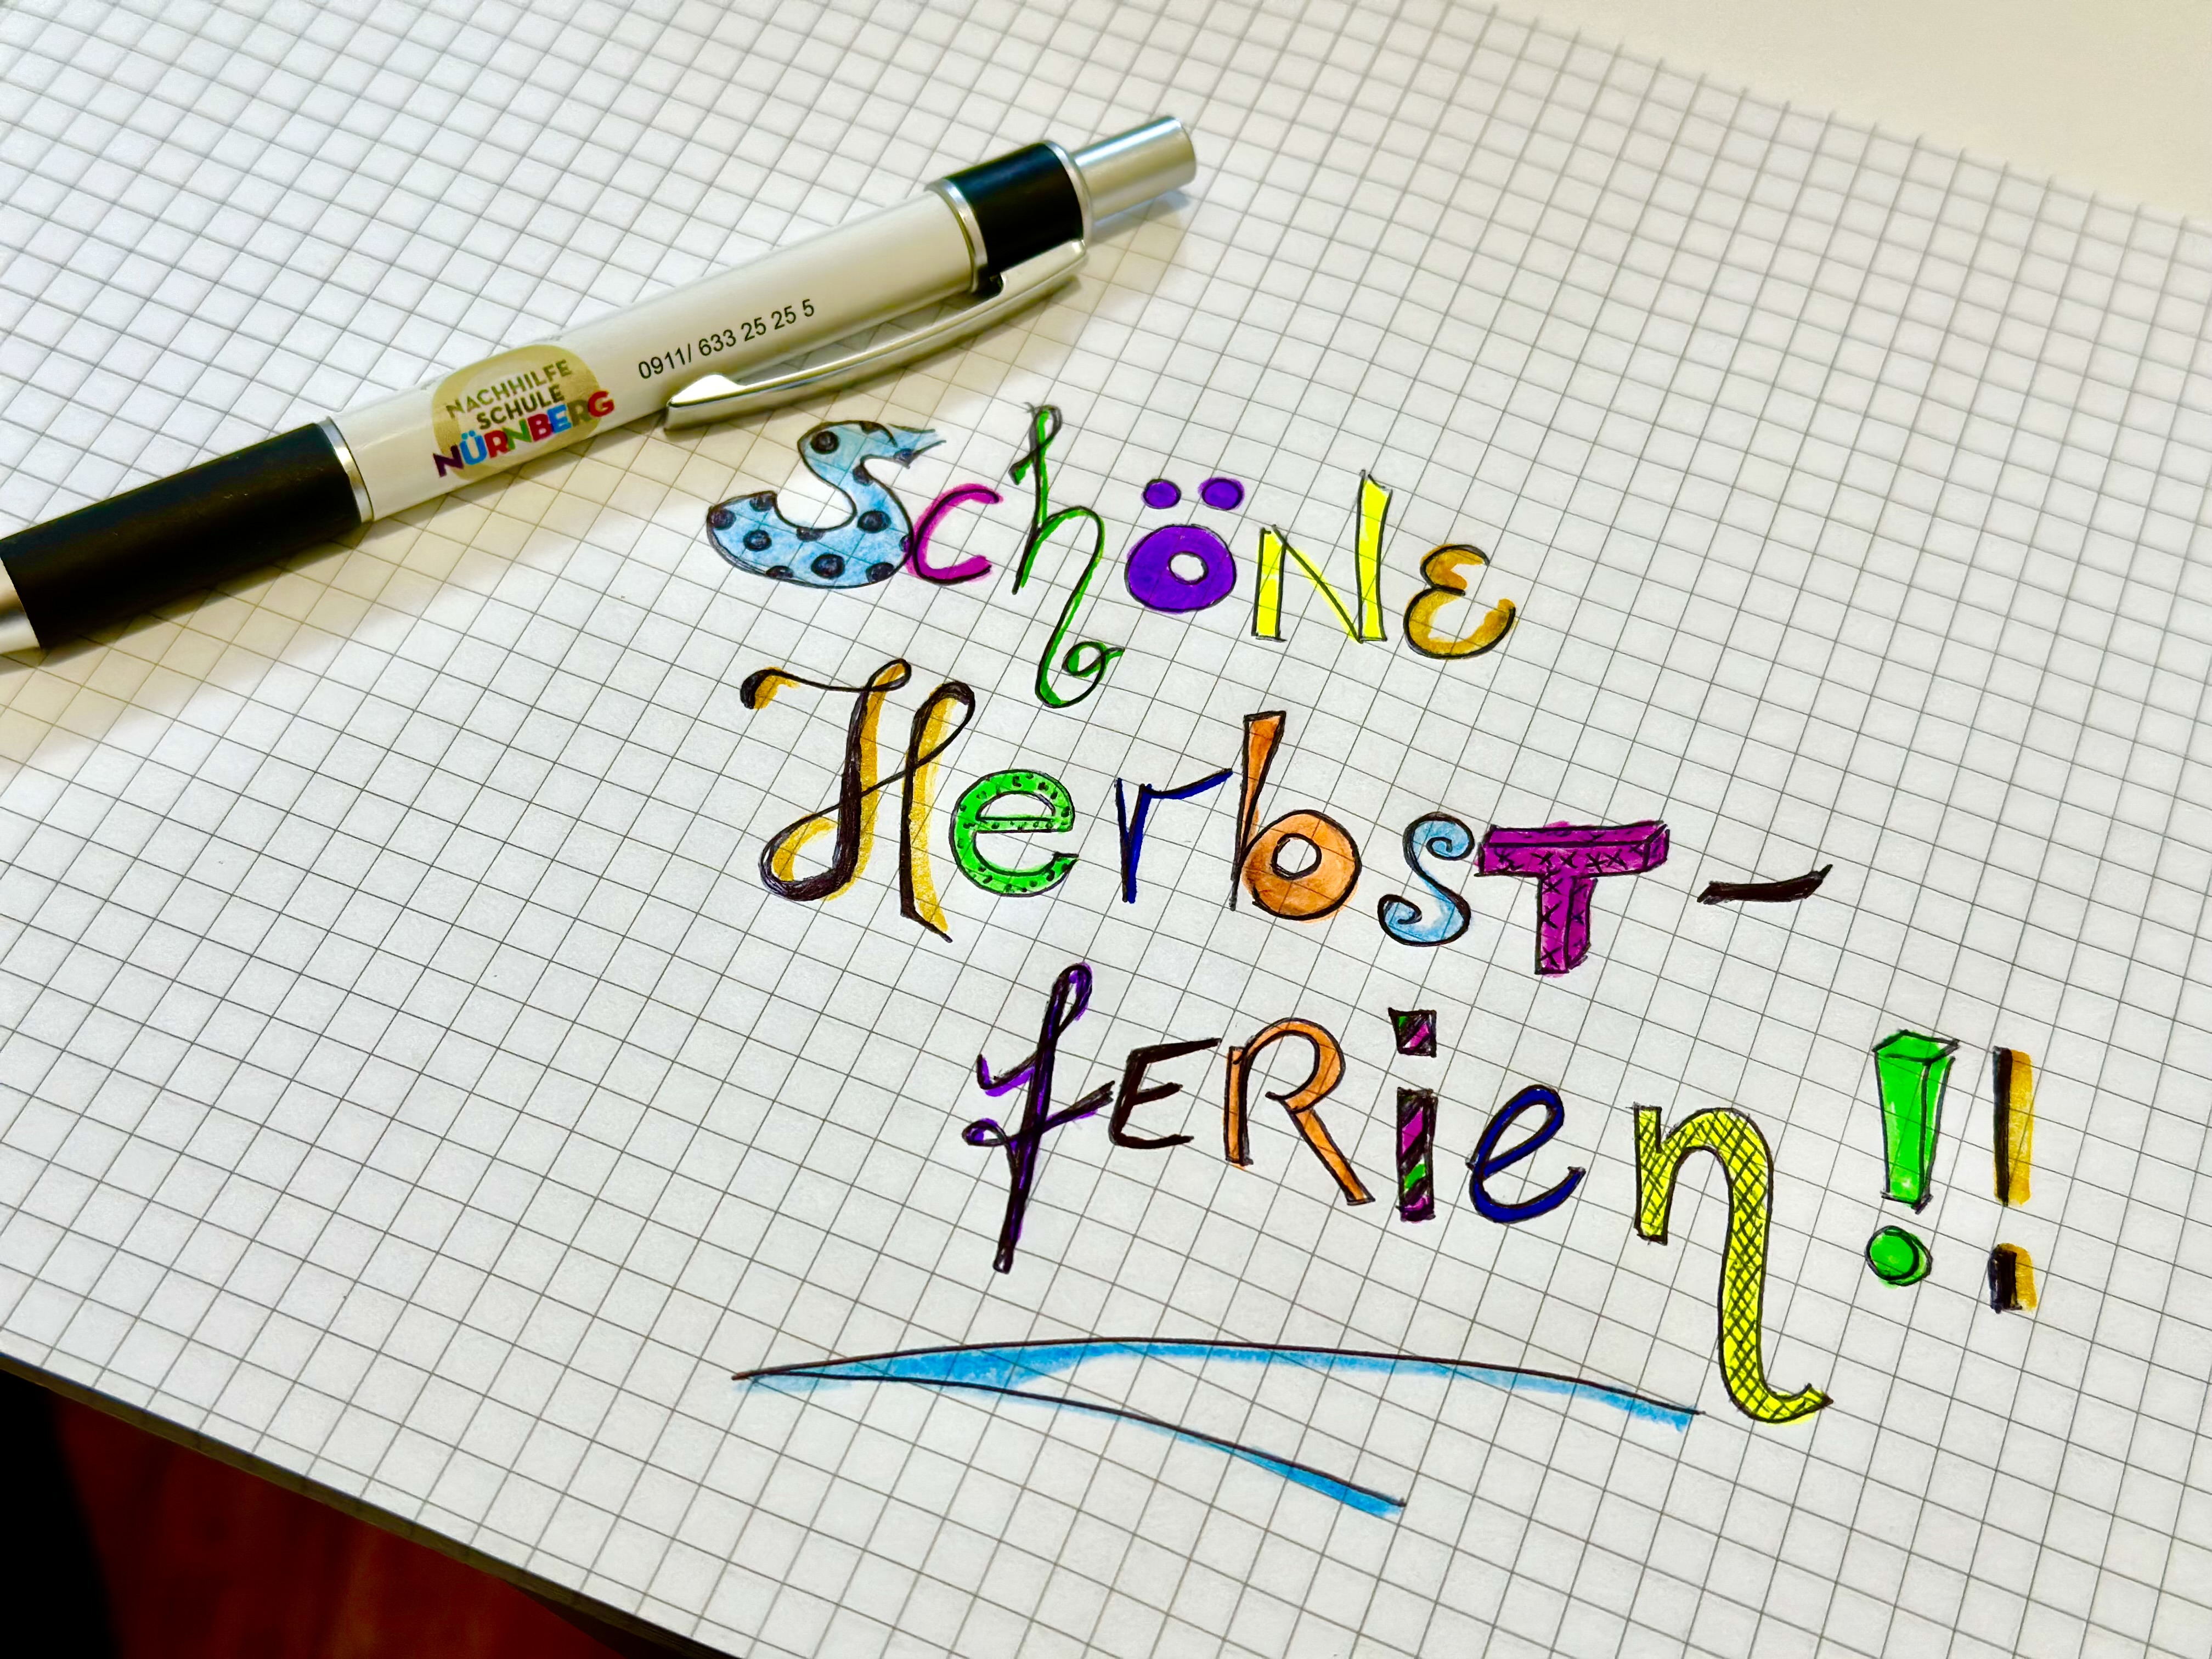 NACHHILFE
SCHULE
NÜRNBERG
0911/ 633 25 25 5
SchöNE
HerbsT-
fERien!!